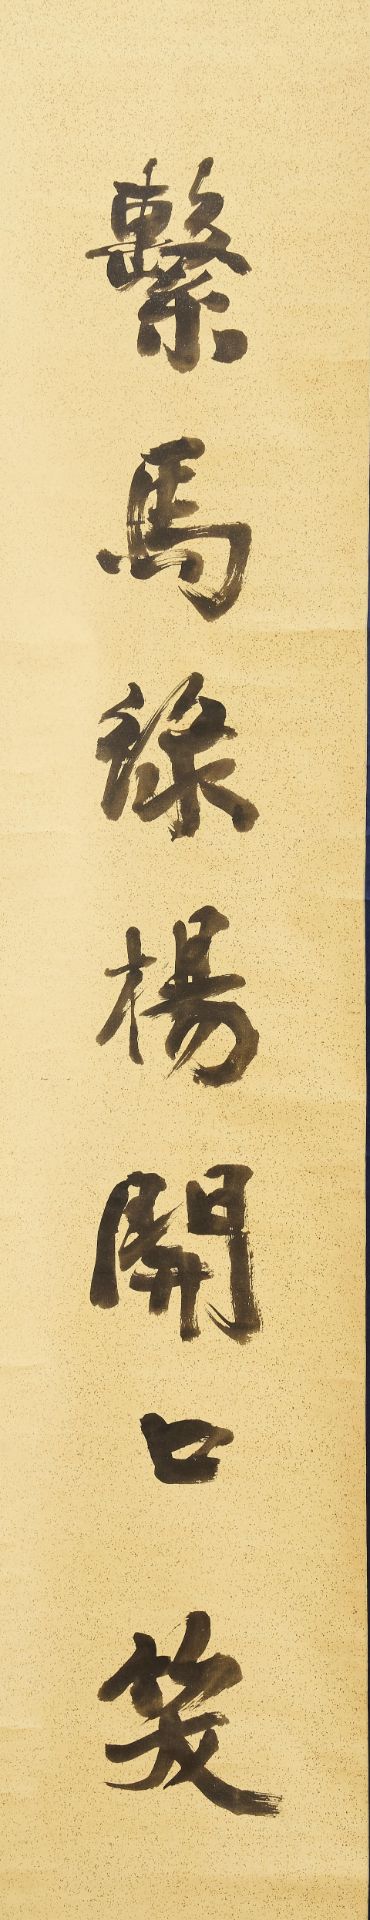 繫馬綠楊開口笑